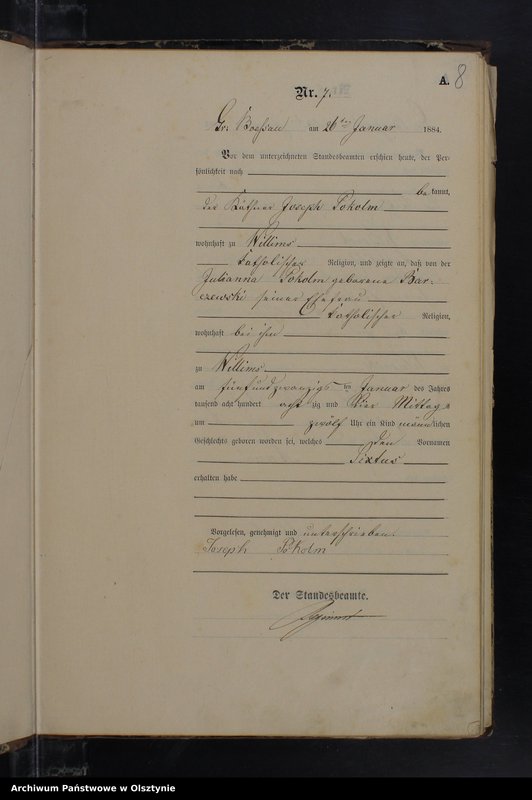 A. 8
Nr. 7.
Gr. Boeßau am 26ten Januar 1884.
Vor dem unterzeichneten Standesbeamten erschien heute, der Per-
sönlichkeit nach
be kannt,
der Käthner Joseph Pokolm
wohnhaft zu Willims
katholischer Religion, und zeigte an, daß von der
Julianna Pokolm geborene Bar-
czewski seiner Ehefrau
katholischer Religion,
wohnhaft bei ihm
zu Willims
am fünfundzwanzigsten Januar des Jahres
tausend acht hundert acht zig und Vier Mittags
um zwölf Uhr ein Kind männlichen
Geschlechts geboren worden sei, welches den Vornamen
Sixtus
erhalten habe
Vorgelesen, genehmigt und unterschrieben.
Joseph Pokolm
Der Standesbeamte.
Archiwum Państwowe w Olsztynie